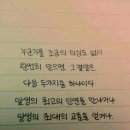 누군가를 조금의 의심도 없이
완전히 믿으면 그 결말은
다음 두가지중 하나이다
일생의 최고의 인연을 만나거나
일생의 최대의 교훈을 얻거나